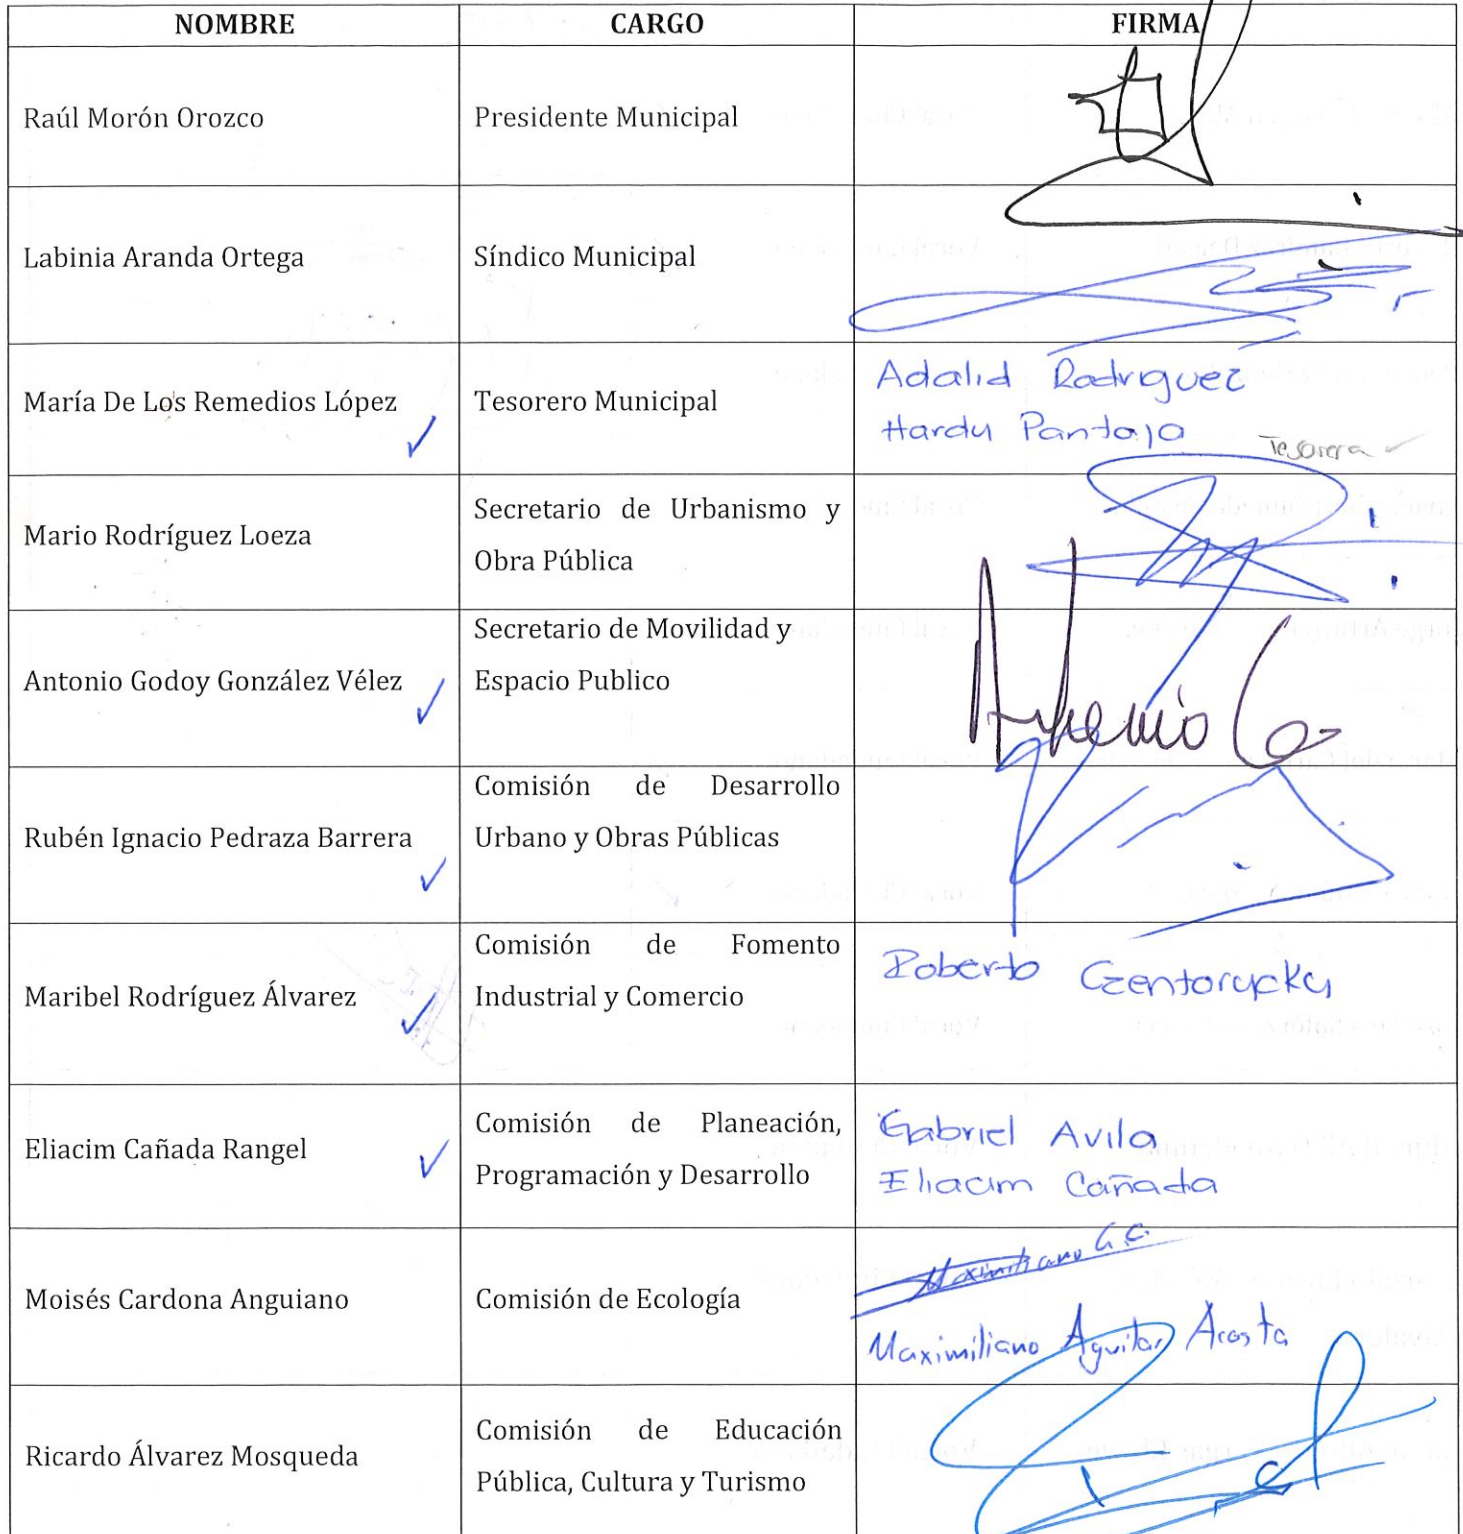 NOMBRE CARGO FIRMA
Raúl Morón Orozco Presidente Municipal
Labinia Aranda Ortega Síndico Municipal
María De Los Remedios López Tesorero Municipal
Adalid Rodriguez
Hardy Pantoja
Tesorera
Mario Rodríguez Loeza
Secretario de Urbanismo y
Obra Pública
Antonio Godoy González Vélez
Secretario de Movilidad y
Espacio Publico
Rubén Ignacio Pedraza Barrera
Comisión de Desarrollo
Urbano y Obras Públicas
Maribel Rodríguez Álvarez
Comisión de Fomento
Industrial y Comercio
Roberto
Eliacim Cañada Rangel
Comisión de Planeación,
Programación y Desarrollo
Gabriel Avila
Eliacim Cañada
Moisés Cardona Anguiano Comisión de Ecología
Maximiliano
Maximiliano Aguilar Acosta
Ricardo Álvarez Mosqueda
Comisión de Educación
Pública, Cultura y Turismo